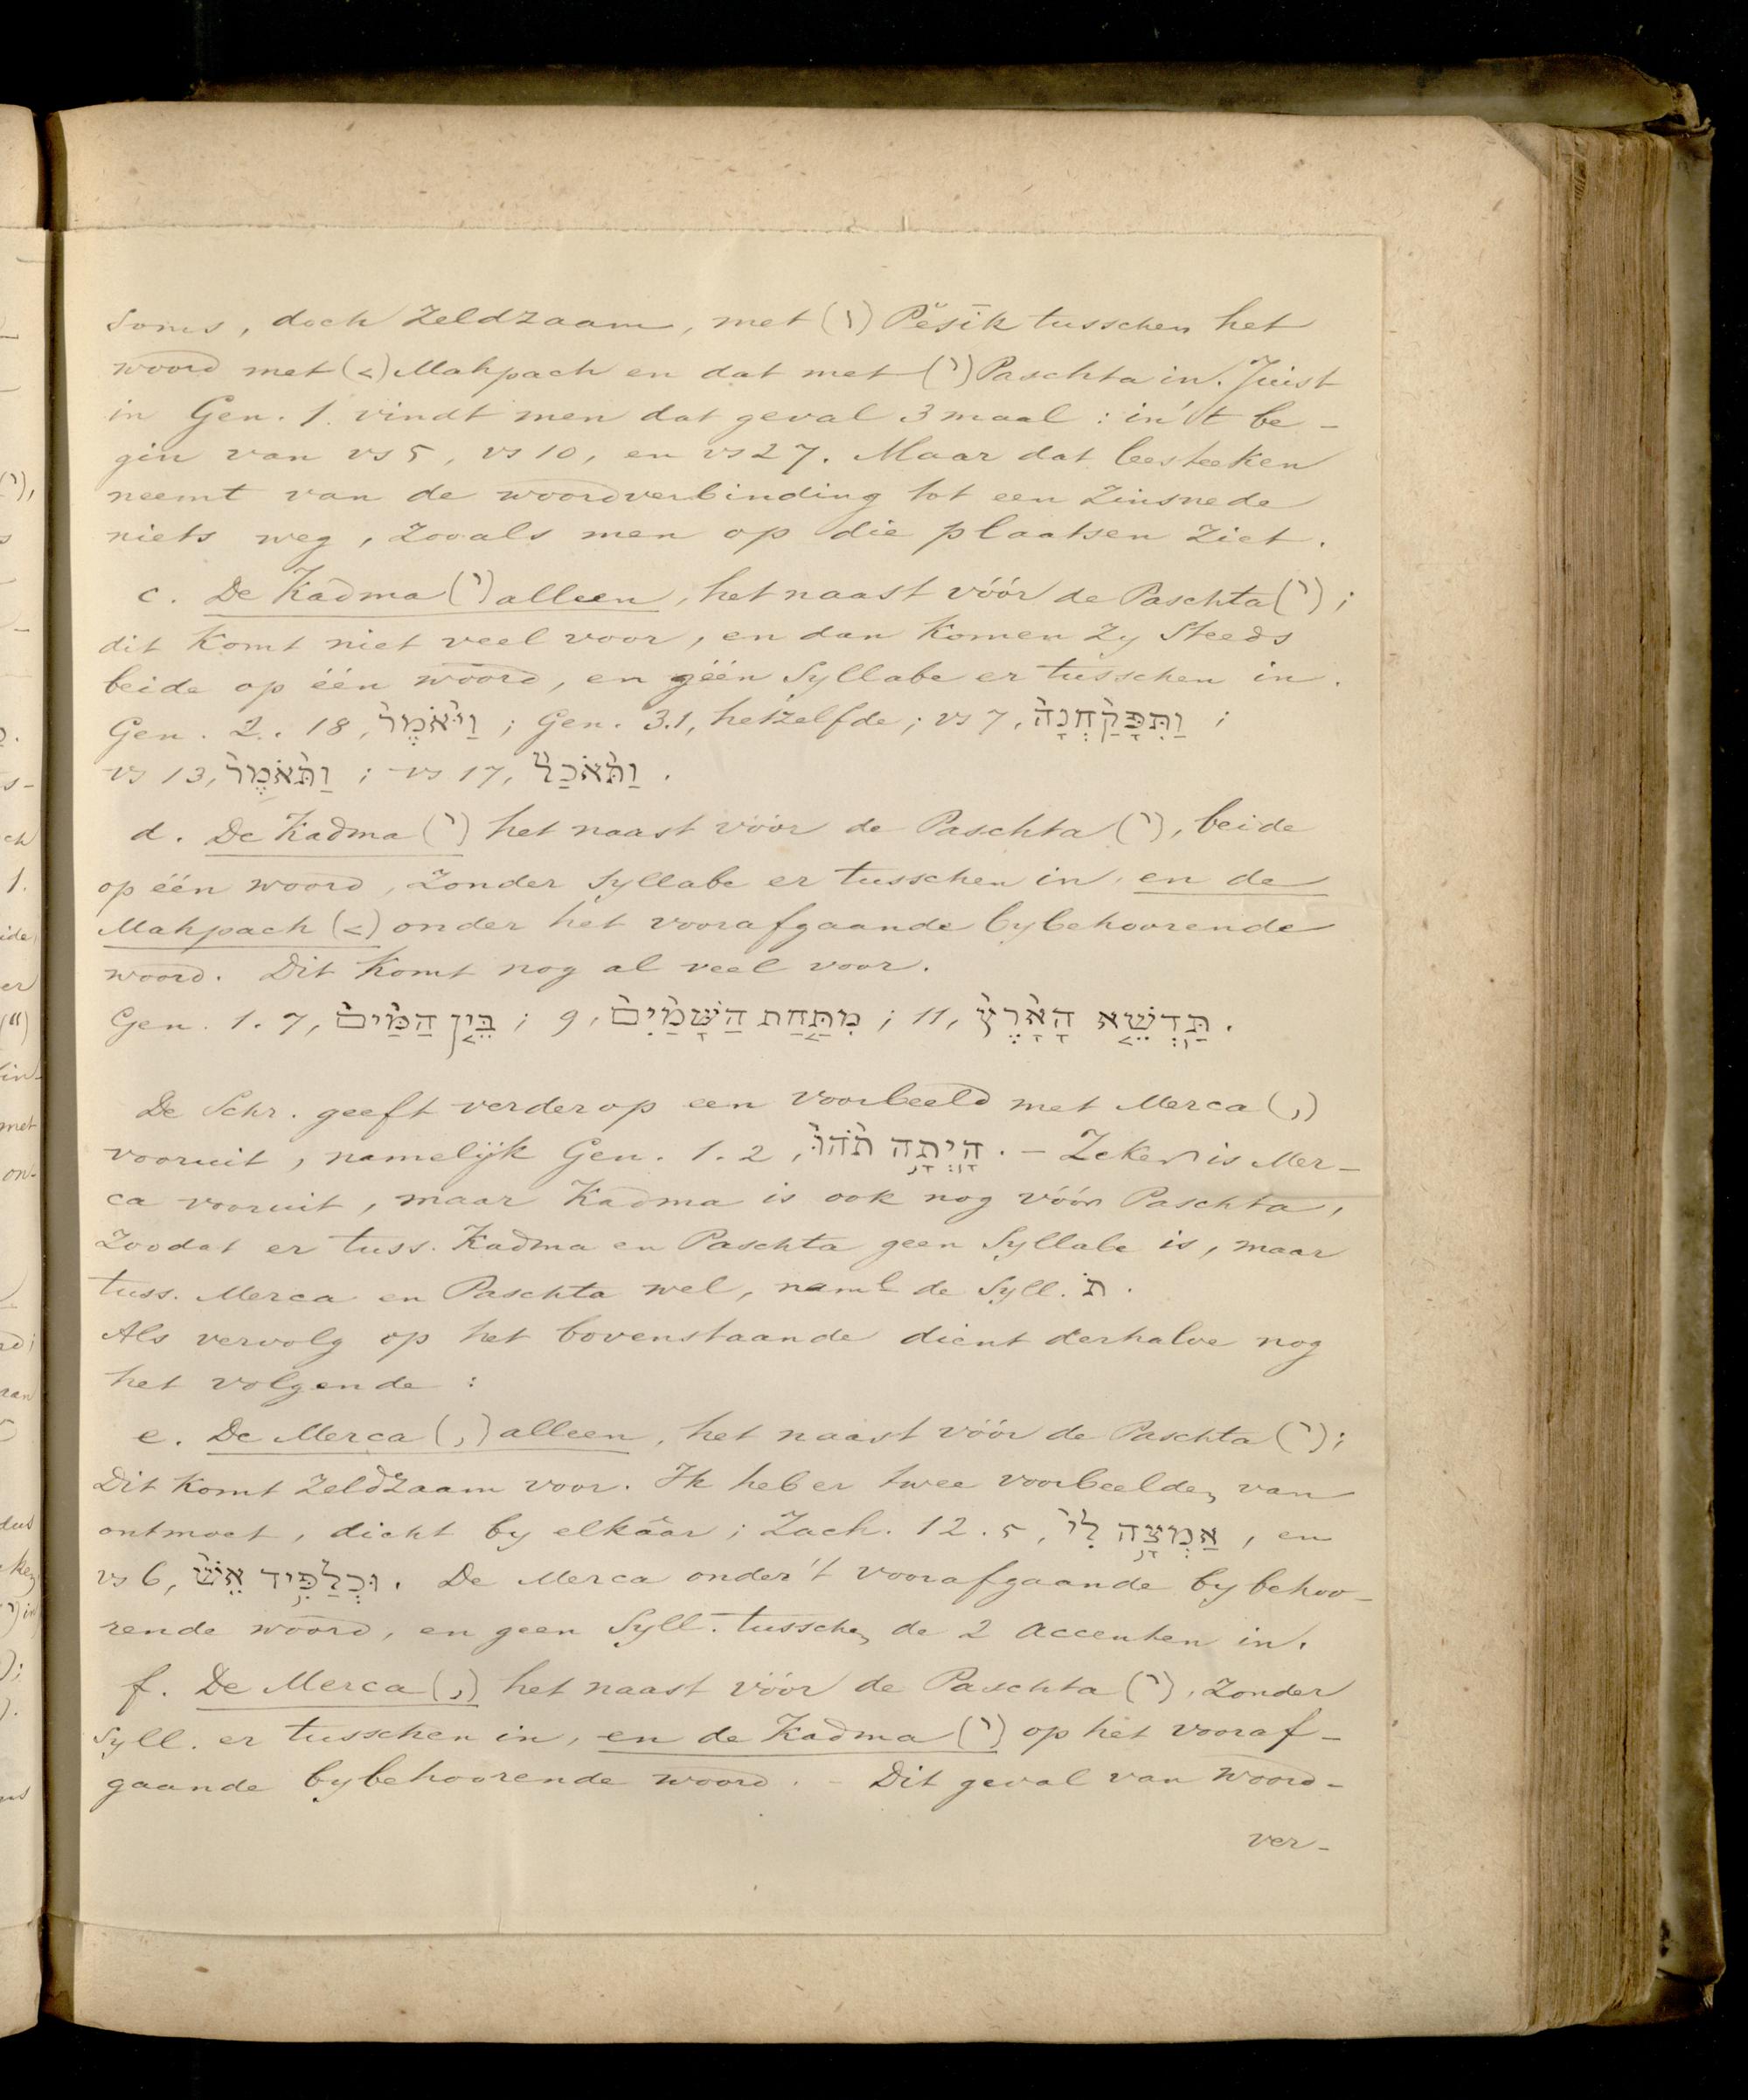 soms, doch zeldzaam, met (׀) Pĕsīk tusschen het
woord met (֤) Mahpach en dat met (֙) Paschta in. Juist
in Gen. 1. vindt men dat geval 3 maal : in 't be-
gin van vs 5, vs 10, en vs 27. Maar dat leesteeken
neemt van de woordverbinding tot een zinsnede
niets weg, zooals men op die plaatsen ziet.
c. De Kadma (֨) alleen, het naast vóór de Paschta (֙);
dit komt niet veel voor, en dan komen zy steeds
beide op één woord, en géén syllabe er tusschen in.
Gen. 2. 18, וַיֹּ֨אמֶר֙ ; Gen. 3.1, hetzelfde; vs 7, וַתִּפָּקַ֨חְנָה֙ ;
vs 13, וַתֹּ֨אמֶר֙ ; vs 17, וַתֹּ֨אכַל֙ .
d. De Kadma (֨) het naast vóór de Paschta (֙), beide
op één woord, zonder syllabe er tusschen in, en de
Mahpach (֤) onder het voorafgaande bybehoorende
woord. Dit komt nog al veel voor.
Gen. 1. 7, בֵּ֤ין הַמַּ֨יִם֙ ; 9, מִתַּ֤חַת הַשָּׁמַ֨יִם֙ ; 11, תַּֽדְשֵׁ֤א הָאָ֨רֶץ֙ .
De Schr. geeft verder op een voorbeeld met Merca (֥)
vooruit, namelijk Gen. 1. 2, הָֽיְתָ֥ה תֹ֨הוּ֙ . – Zeker is Mer-
ca vooruit, maar Kadma is ook nog vóór Paschta,
zoodat er tuss. Kadma en Paschta geen syllabe is, maar
tuss. Merca en Paschta wel, naml de Syll. תֹ .
Als vervolg op het bovenstaande dient derhalve nog
het volgende :
e. De Merca (֥) alleen, het naast vóór de Paschta (֙);
Dit komt zeldzaam voor. Ik heb er twee voorbeelden van
ontmoet, dicht by elkâar; Zach. 12. 5, אַמְצָ֥ה לִי֙ , en
vs 6, וּכְלַפִּ֥יד אֵשׁ֙ . De Merca onder 't voorafgaande bybehoo-
rende woord, en geen Syll. tusschen de 2 accenten in.
f. De Merca (֥) het naast vóór de Paschta (֙), zonder
Syll. er tusschen in, en de Kadma (֨) op het vooraf-
gaande bybehoorende woord. – Dit geval van woord-
ver-